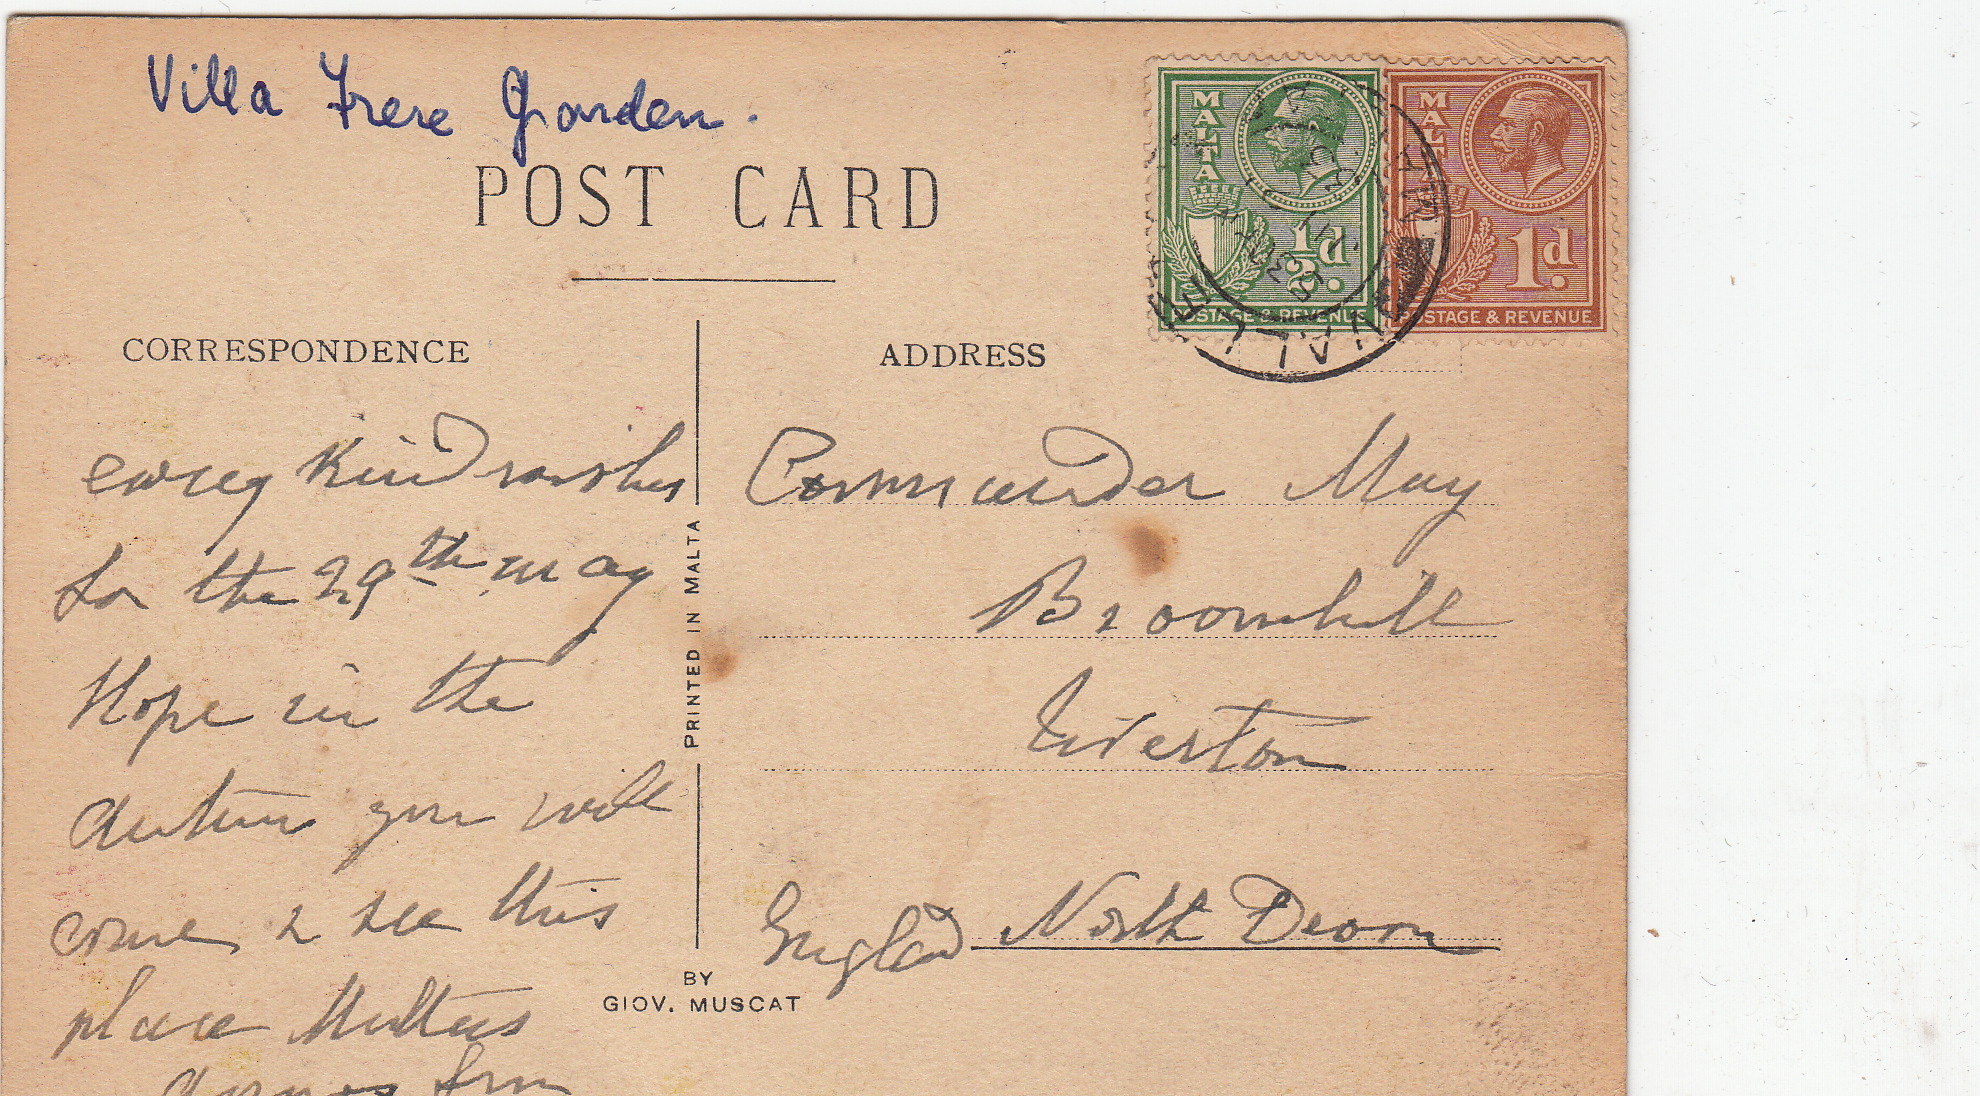 Villa Frere Garden.
POST CARD
MALTA
½d.
POSTAGE & REVENUE
MALTA
1d.
POSTAGE & REVENUE
VALLE
CORRESPONDENCE
ADDRESS
every kind wishes
for the 29th may
Hope in the
autum you will
come & see this
place
from
Commander May
Broomhill
Tiverton
North Devon
England
PRINTED IN MALTA
BY
GIOV. MUSCAT